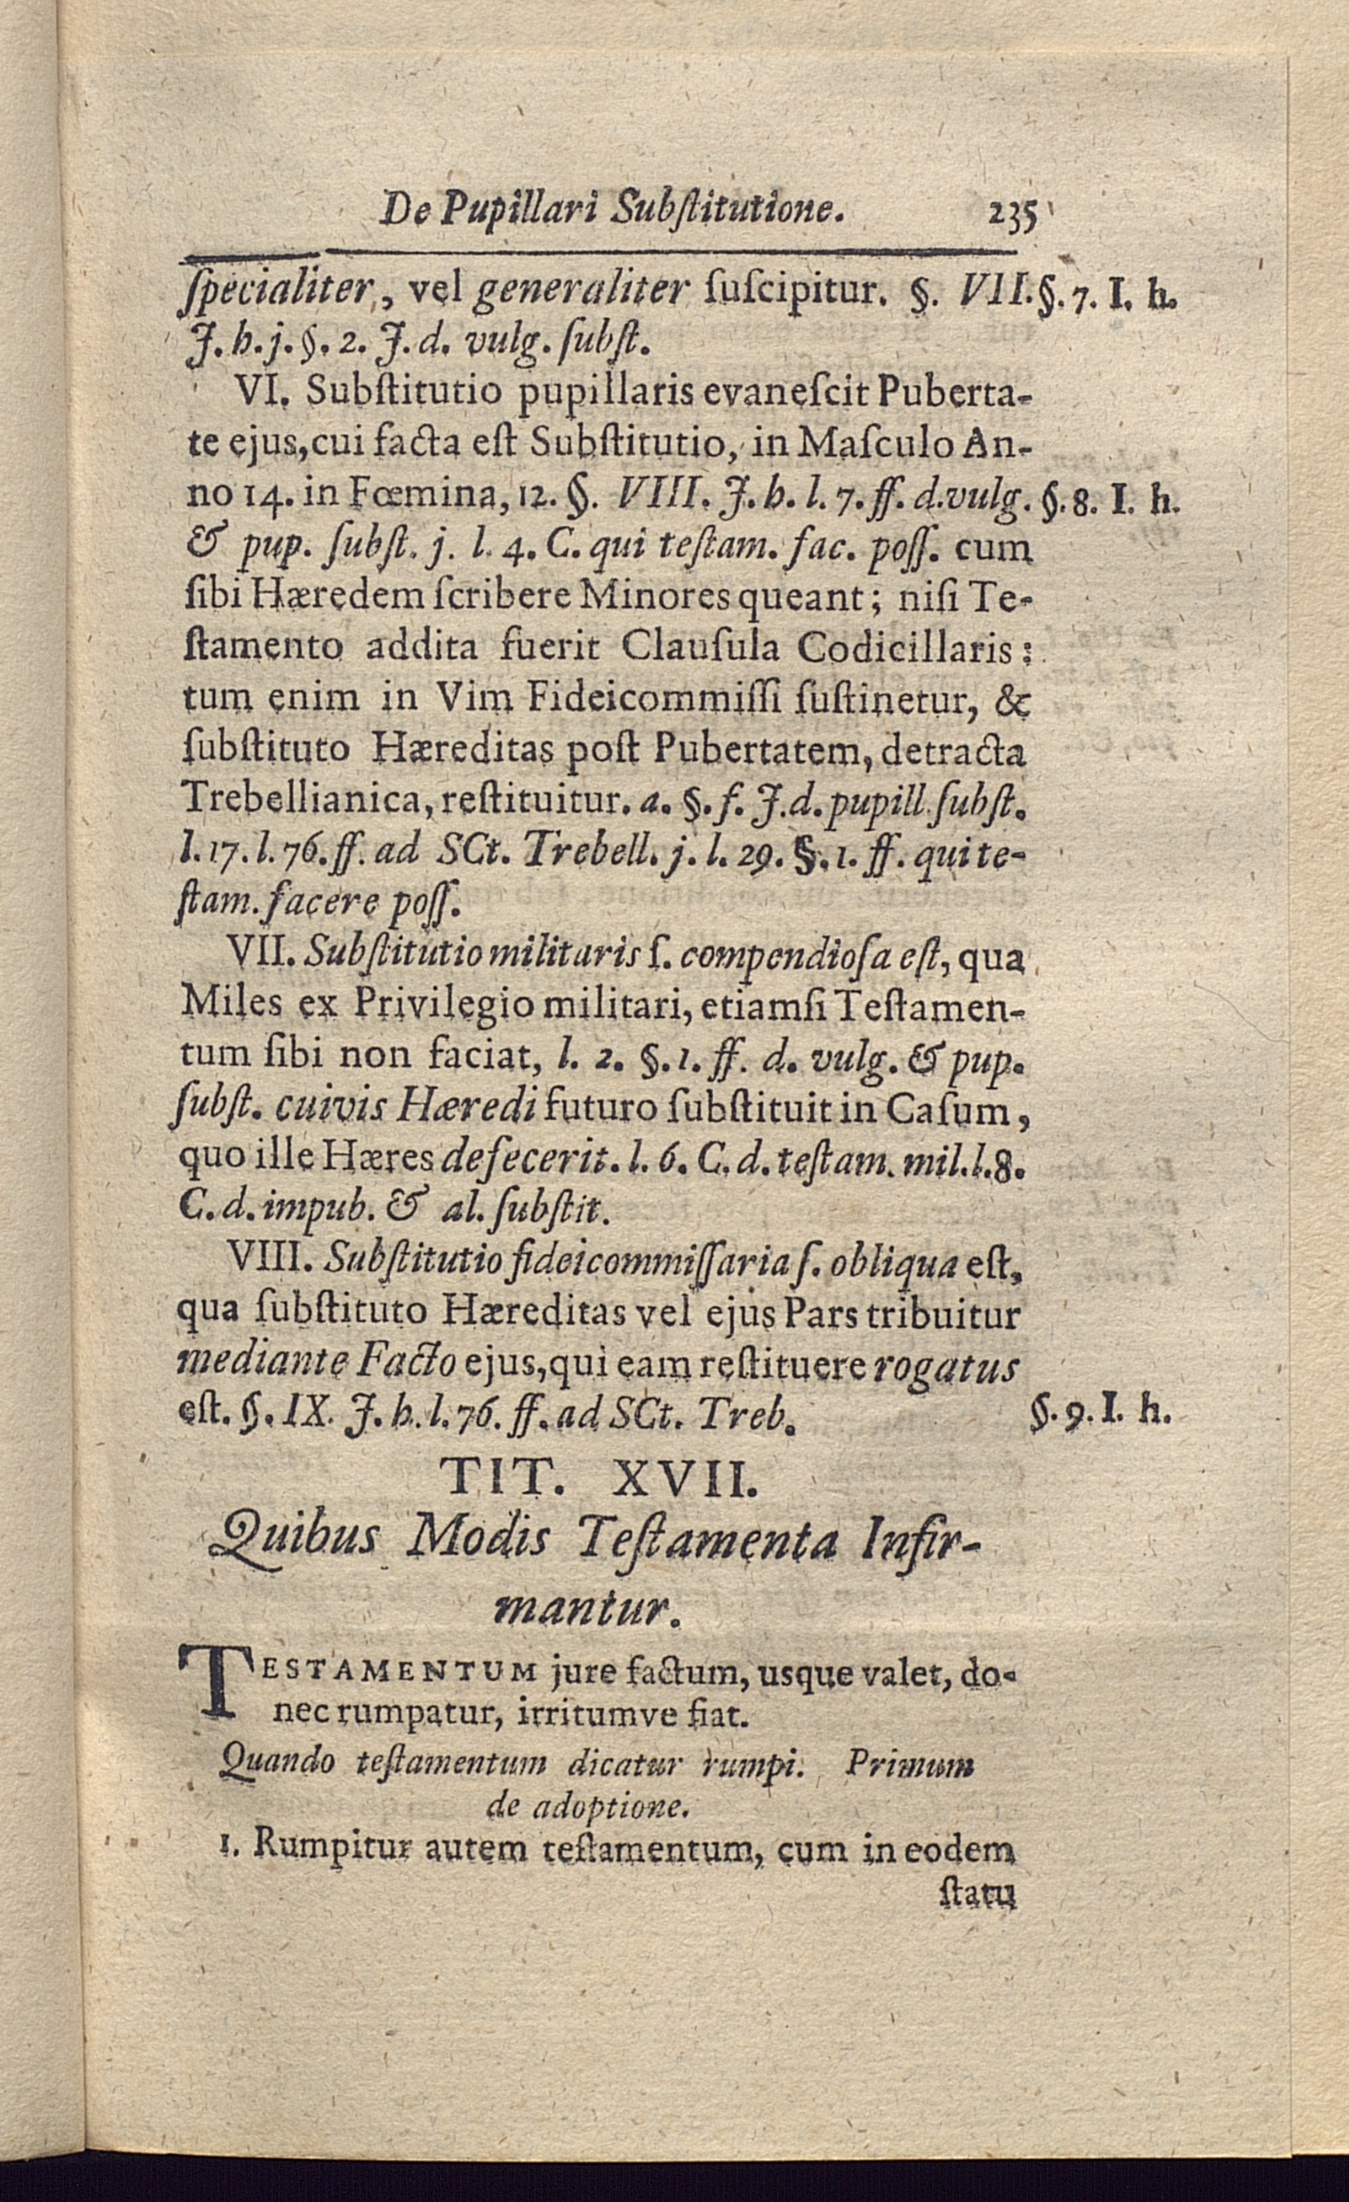 De Pupillari Subſtitutione. 235
ſpecialiter, vel generaliter ſuſcipitur. §. VII. §. 7. I. h.
J. h. j. §. 2. J. d. vulg. ſubſt.
VI. Subſtitutio pupillaris evaneſcit Puberta-
te ejus, cui facta eſt Subſtitutio, in Maſculo An-
no 14. in Fœmina, 12. §. VIII. J. h. l. 7. ff. d. vulg. §. 8. I. h.
& pup. ſubſt. j. l. 4. C. qui teſtam. fac. poſſ. cum
ſibi Hæredem ſcribere Minores queant; niſi Te-
ſtamento addita fuerit Clauſula Codicillaris:
tum enim in Vim Fideicommiſſi ſuſtinetur, &
ſubſtituto Hæreditas poſt Pubertatem, detracta
Trebellianica, reſtituitur. a. §. f. J. d. pupill. ſubſt.
l. 17. l. 76. ff. ad SCt. Trebell. j. l. 29. §. 1. ff. qui te-
ſtam. facere poſſ.
VII. Subſtitutio militaris ſ. compendioſa eſt, qua
Miles ex Privilegio militari, etiamſi Teſtamen-
tum ſibi non faciat, l. 2. §. 1. ff. d. vulg. & pup.
ſubſt. cuivis Hæredi futuro ſubſtituit in Caſum,
quo ille Hæres defecerit. l. 6. C. d. teſtam. mil. l. 8.
C. d. impub. & al. ſubſtit.
VIII. Subſtitutio fideicommiſſaria ſ. obliqua eſt,
qua ſubſtituto Hæreditas vel ejus Pars tribuitur
mediante Facto ejus, qui eam reſtituere rogatus
eſt. §. IX. J. h. l. 76. ff. ad SCt. Treb. §. 9. I. h.
TIT. XVII.
Quibus Modis Teſtamenta Infir-
mantur.
TESTAMENTUM jure factum, usque valet, do-
nec rumpatur, irritumve fiat.
Quando teſtamentum dicatur rumpi. Primum
de adoptione.
1. Rumpitur autem teſtamentum, cum in eodem
ſtatu